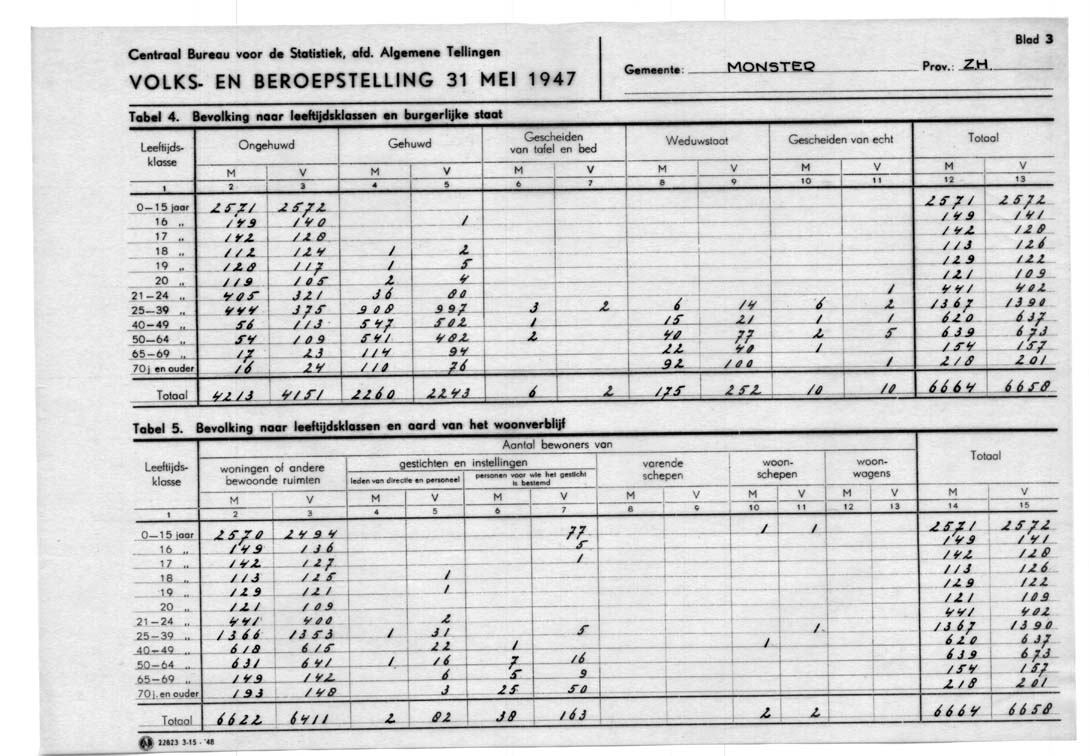 Centraal Bureau voor de Statistiek, afd. Algemene Tellingen
VOLKS- EN BEROEPSTELLING 31 MEI 1947
Gemeente: MONSTER Prov.: Z.H.
Blad 3
Tabel 4. Bevolking naar leeftijdsklassen en burgerlijke staat
Leeftijds-klasse Ongehuwd Gehuwd Gescheiden van tafel en bed Weduwstaat Gescheiden van echt Totaal
M V M V M V M V M V M V
1 2 3 4 5 6 7 8 9 10 11 12 13
0—15 jaar 2571 2572 2571 2572
16 „ 149 140 1 149 141
17 „ 142 128 142 128
18 „ 112 124 1 2 113 126
19 „ 128 117 1 5 129 122
20 „ 119 105 2 4 121 109
21—24 „ 405 321 36 80 1 441 402
25—39 „ 444 375 908 997 3 2 6 14 6 2 1367 1390
40—49 „ 56 113 547 502 1 15 21 1 1 620 637
50—64 „ 54 109 541 482 2 40 77 2 5 639 673
65—69 „ 17 23 114 94 22 40 1 154 157
70 j. en ouder 16 24 110 76 92 100 1 218 201
Totaal 4213 4151 2260 2243 6 2 175 252 10 10 6664 6658
Tabel 5. Bevolking naar leeftijdsklassen en aard van het woonverblijf
Aantal bewoners van
Leeftijds-klasse woningen of andere bewoonde ruimten gestichten en instellingen varende schepen woon-schepen woon-wagens Totaal
leden van directie en personeel personen voor wie het gesticht is bestemd
M V M V M V M V M V M V M V
1 2 3 4 5 6 7 8 9 10 11 12 13 14 15
0—15 jaar 2570 2494 77 1 1 2571 2572
16 „ 149 136 5 149 141
17 „ 142 127 1 142 128
18 „ 113 125 1 113 126
19 „ 129 121 1 129 122
20 „ 121 109 121 109
21—24 „ 441 400 2 441 402
25—39 „ 1366 1353 1 31 5 1 1367 1390
40—49 „ 618 615 22 1 1 620 637
50—64 „ 631 641 1 16 7 16 639 673
65—69 „ 149 142 6 5 9 154 157
70 j. en ouder 193 148 3 25 50 218 201
Totaal 6622 6411 2 82 38 163 2 2 6664 6658
22823 3-15 - '48